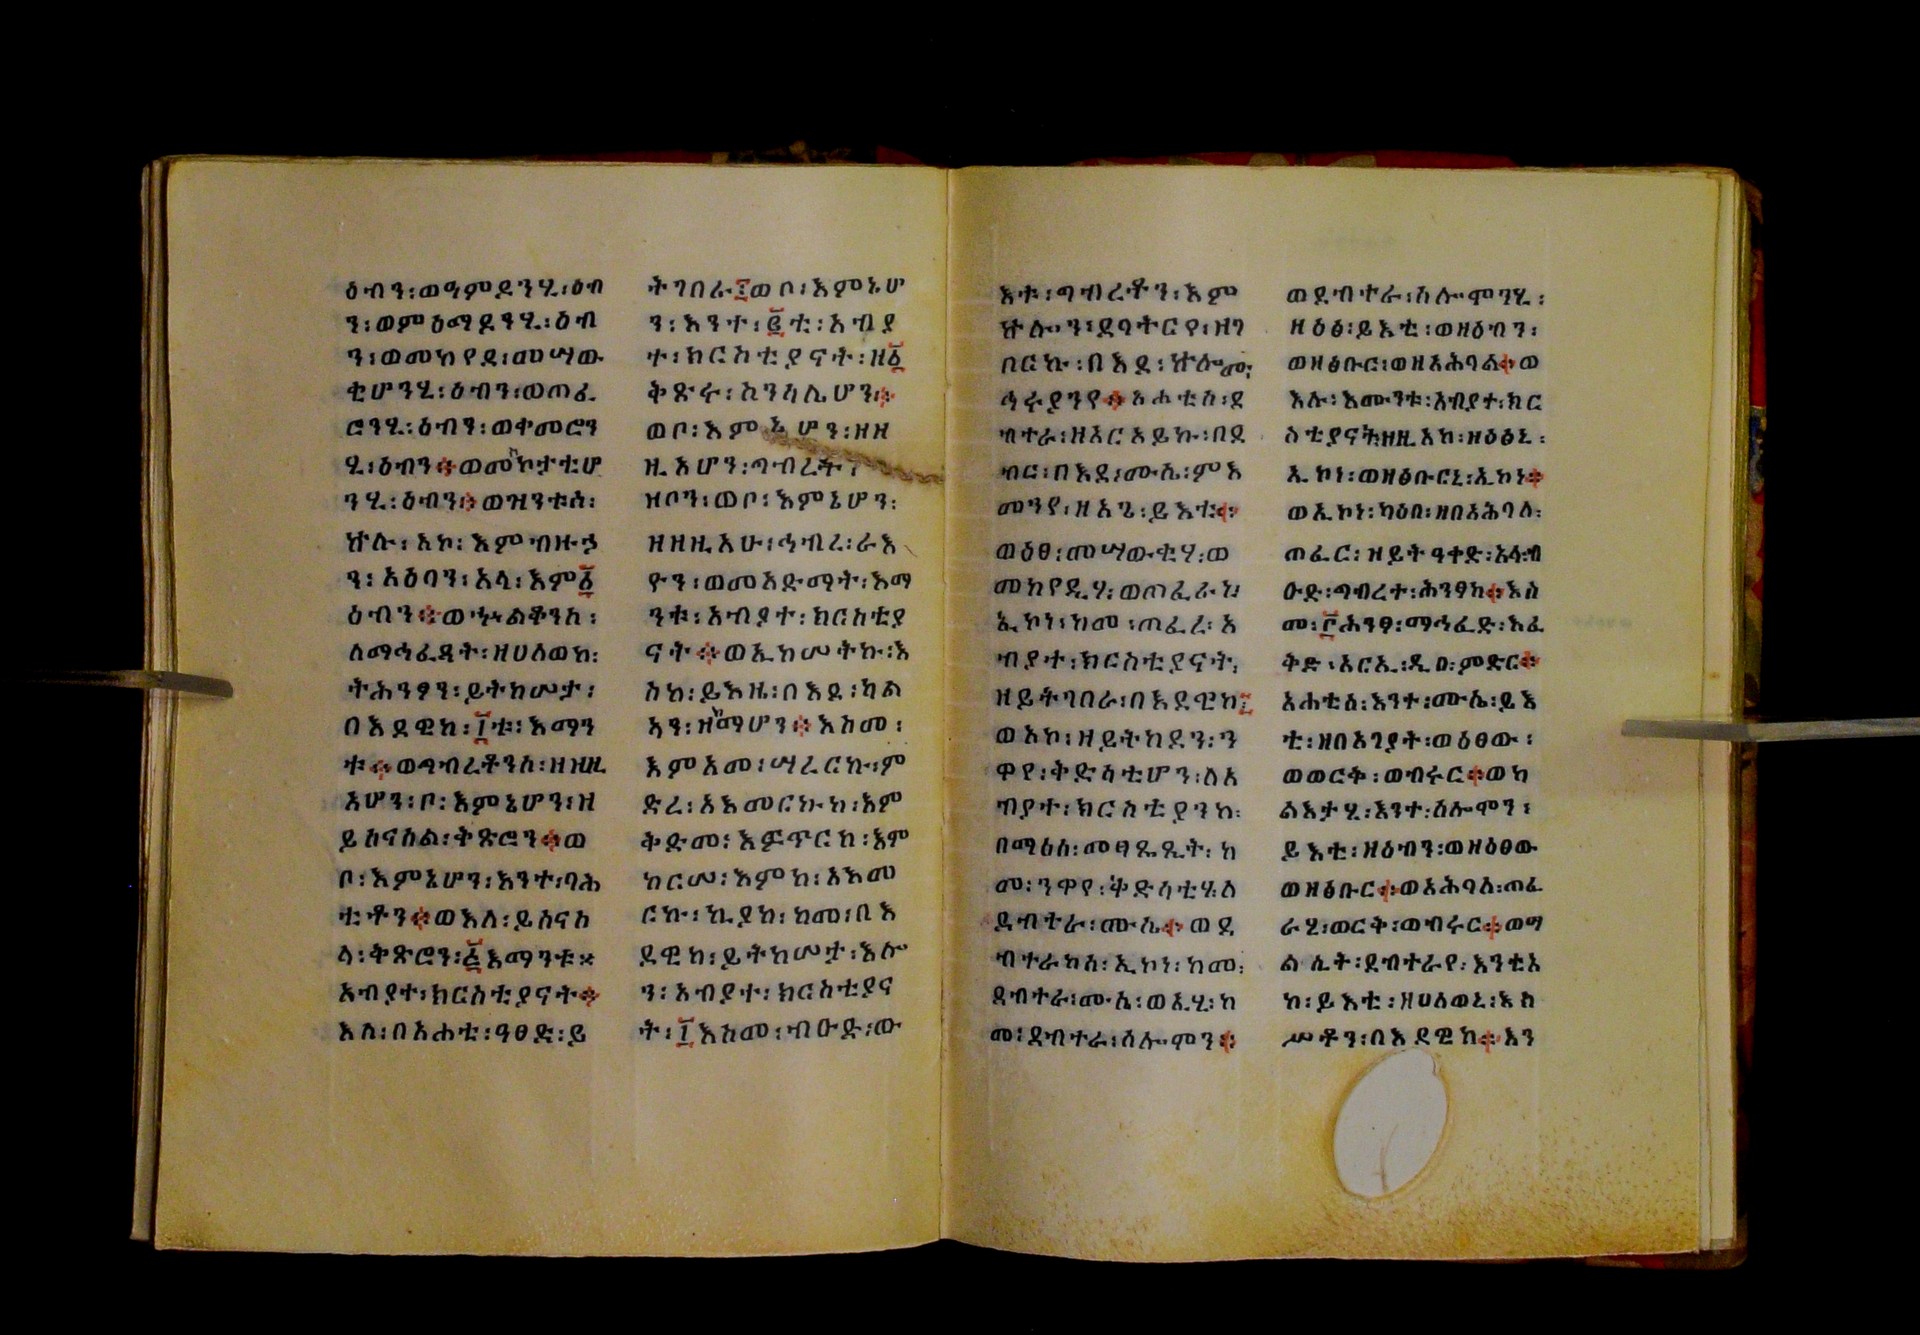 ዕብን፡ወዓምደንሂ፡ዕብ
ን፡ወምዕማደንሂ፡ዕብ
ን፡ወመከየደ፡መሣው
ቂሆንሂ፡ዕብን፡ወጠፈ
ሮንሂ፡ዕብን፡ወቀመሮን
ሂ፡ዕብን፨ወመኮታቲሆ
ንሂ፡ዕብን፨ወዝንቱሰ፡
ኵሉ፡አኮ፡እምብዙኅ
ን፡አዕባን፡አላ፡እም፩
ዕብን፨ወኍልቆንሰ፡
ለማኅፈዳት፡ዘሀለወከ፡
ትሕንፅን፡ይትከሠታ፡
በእደዊከ፡፲ቱ፡እማን
ቱ፨ወጣብረቶንሰ፡ዘዘዚ
አሆን፡ቦ፡እምኔሆን፡ዘ
ይሰናሰል፡ቅጽሮን፨ወ
ቦ፡እምኔሆን፡እንተ፡ባሕ
ቲቶን፨ወእለ፡ይሰናሰ
ላ፡ቅጽሮን፡፭እማንቱ፡
አብያተ፡ክርስቲያናት፨
እለ፡በአሐቲ፡ዓፀድ፡ይ
ትገበራ፡ወቦ፡እምኔሆ
ን፡እንተ፡፪ቲ፡አብያ
ተ፡ክርስቲያናት፡ዘ፩
ቅጽሩ፡ስንሳሊሆን፨
ወቦ፡እምኔሆን፡ዘዘ
ዚአሆን፡ጣብረት፡
ዝቦን፡ወቦ፡እምኔሆን፡
ዘዘዚአሁ፡ኅብረ፡ራእ
ዮን፡ወመአድማት፡እማ
ንቱ፡አብያተ፡ክርስቲያ
ናት፨ወኢከሠትኩ፡እ
ስከ፡ይእዜ፡በእደ፡ካል
ኣን፡ዘከማሆን፨እስመ፡
እምአመ፡ሣረርኩ፡ም
ድረ፡አእመርኩከ፡እም
ቅድመ፡እፍጥርከ፡እም
ከርሠ፡እምከ፡አእመ
ርኩ፡ኪያከ፡ከመ፡በእ
ደዊከ፡ይትከሠታ፡እሎ
ን፡አብያተ፡ክርስቲያና
ት፡፲እስመ፡ብዑድ፡ው
እቱ፡ጣብረቶን፡እም
ኵሎን፡ደባትርየ፡ዘገ
በርኩ፡በእደ፡ኵሎሙ፡
ኄራያንየ፨አሐቲሰ፡ደ
ብተራ፡ዘአርአይኩ፡በደ
ብር፡በእደ፡ሙሴ፡ምእ
መንየ፡ዘአጌ፡ይእቲ፨
ወዕፀ፡መሣውቂሃ፡ወ
መከየዲሃ፡ወጠፈራኒ፡
ኢኮነ፡ከመ፡ጠፈረ፡አ
ብያተ፡ክርስቲያናት፡
ዘይትገበራ፡በእደዊከ፤
ወአኮ፡ዘይትከደን፡ን
ዋየ፡ቅድሳቲሆን፡ለአ
ብያተ፡ክርስቲያንከ፡
በማዕሰ፡መፃጼጺት፡ከ
መ፡ንዋየ፡ቅድሳቲሃ፡ለ
ደብተራ፡ሙሴ፨ወደ
ብተራከሰ፡ኢኮነ፡ከመ፡
ደብተራ፡ሙሴ፡ወኢሂ፡ከ
መ፡ደብተራ፡ሰሎሞን፨
ወደብተራ፡ሰሎሞንሂ፡
ዘዕፅ፡ይእቲ፡ወዘዕብን፡
ወዘፅቡር፡ወዘአሕባል፨ወ
እሉ፡እሙንቱ፡አብያተ፡ክር
ስቲያናት፡ዘዚአከ፡ዘዕፅኒ፡
ኢኮነ፡ወዘፅቡርኒ፡ኢኮነ፨
ወኢኮነ፡ካዕበ፡ዘበአሕባለ፡
ጠፈር፡ዝይትዓተድ፡አላ፡ብ
ዑድ፡ጣብረተ፡ሕንፃከ፨እስ
መ፡፫ሕንፃ፡ማኅፈድ፡እፈ
ቅድ፡አርኢ፡ዲበ፡ምድር፨
አሐቲሰ፡እንተ፡ሙሴ፡ይእ
ቲ፡ዘበአገያት፡ወዕፀው፡
ወወርቅ፡ወብሩር፨ወካ
ልእታሂ፡እንተ፡ሰሎሞን፡
ይእቲ፡ዘዕብን፡ወዘዕፀው
ወዘፅቡር፨ወአሕባለ፡ጠፈ
ራሂ፡ወርቅ፡ወብሩር፨ወሣ
ልሲት፡ደብተራየ፡እንቲአ
ከ፡ይእቲ፡ዘሀለወኒ፡እከ
ሥቶን፡በእደዊከ፨እን